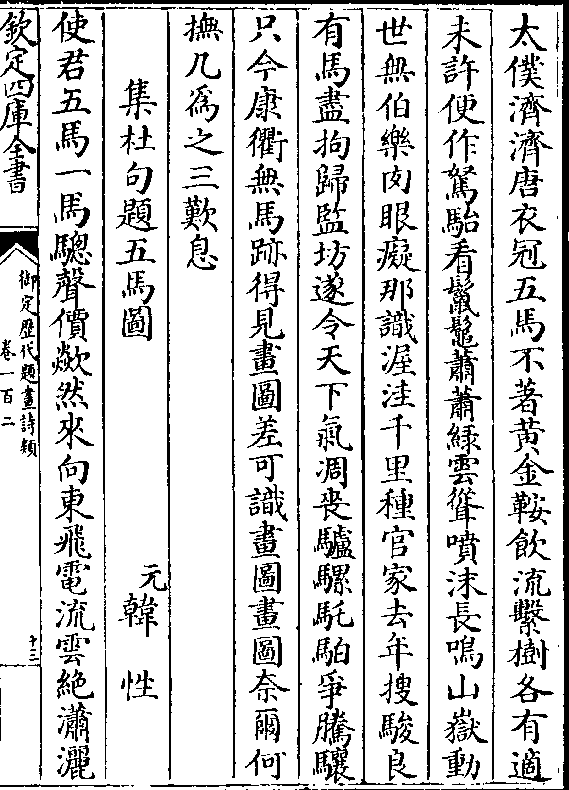 太僕濟濟唐衣冠五馬不著黄金鞍飲流繫樹各有適
未許便作駑駘看鬛鬛蕭蕭緑雲聳噴沫長鳴山嶽動
世無伯樂肉眼癡那識渥洼千里種官家去年搜駿良
有馬盡拘歸監坊遂令天下氣凋喪驢騾駞駞爭騰驤
只今康衢無馬跡得見畫圖差可識畫圖畫圖奈爾何
撫几為之三歎息
集杜句題五馬圖
元韓性
使君五馬一馬驄聲價歘然來向東飛電流雲絶瀟灑
欽定四庫全書
御定歴代題畫詩類
卷一百二
十三